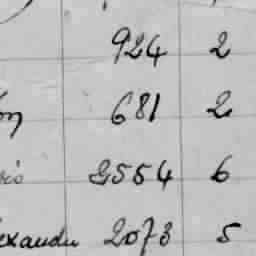 924 2
681 2
2554 6
2073 5